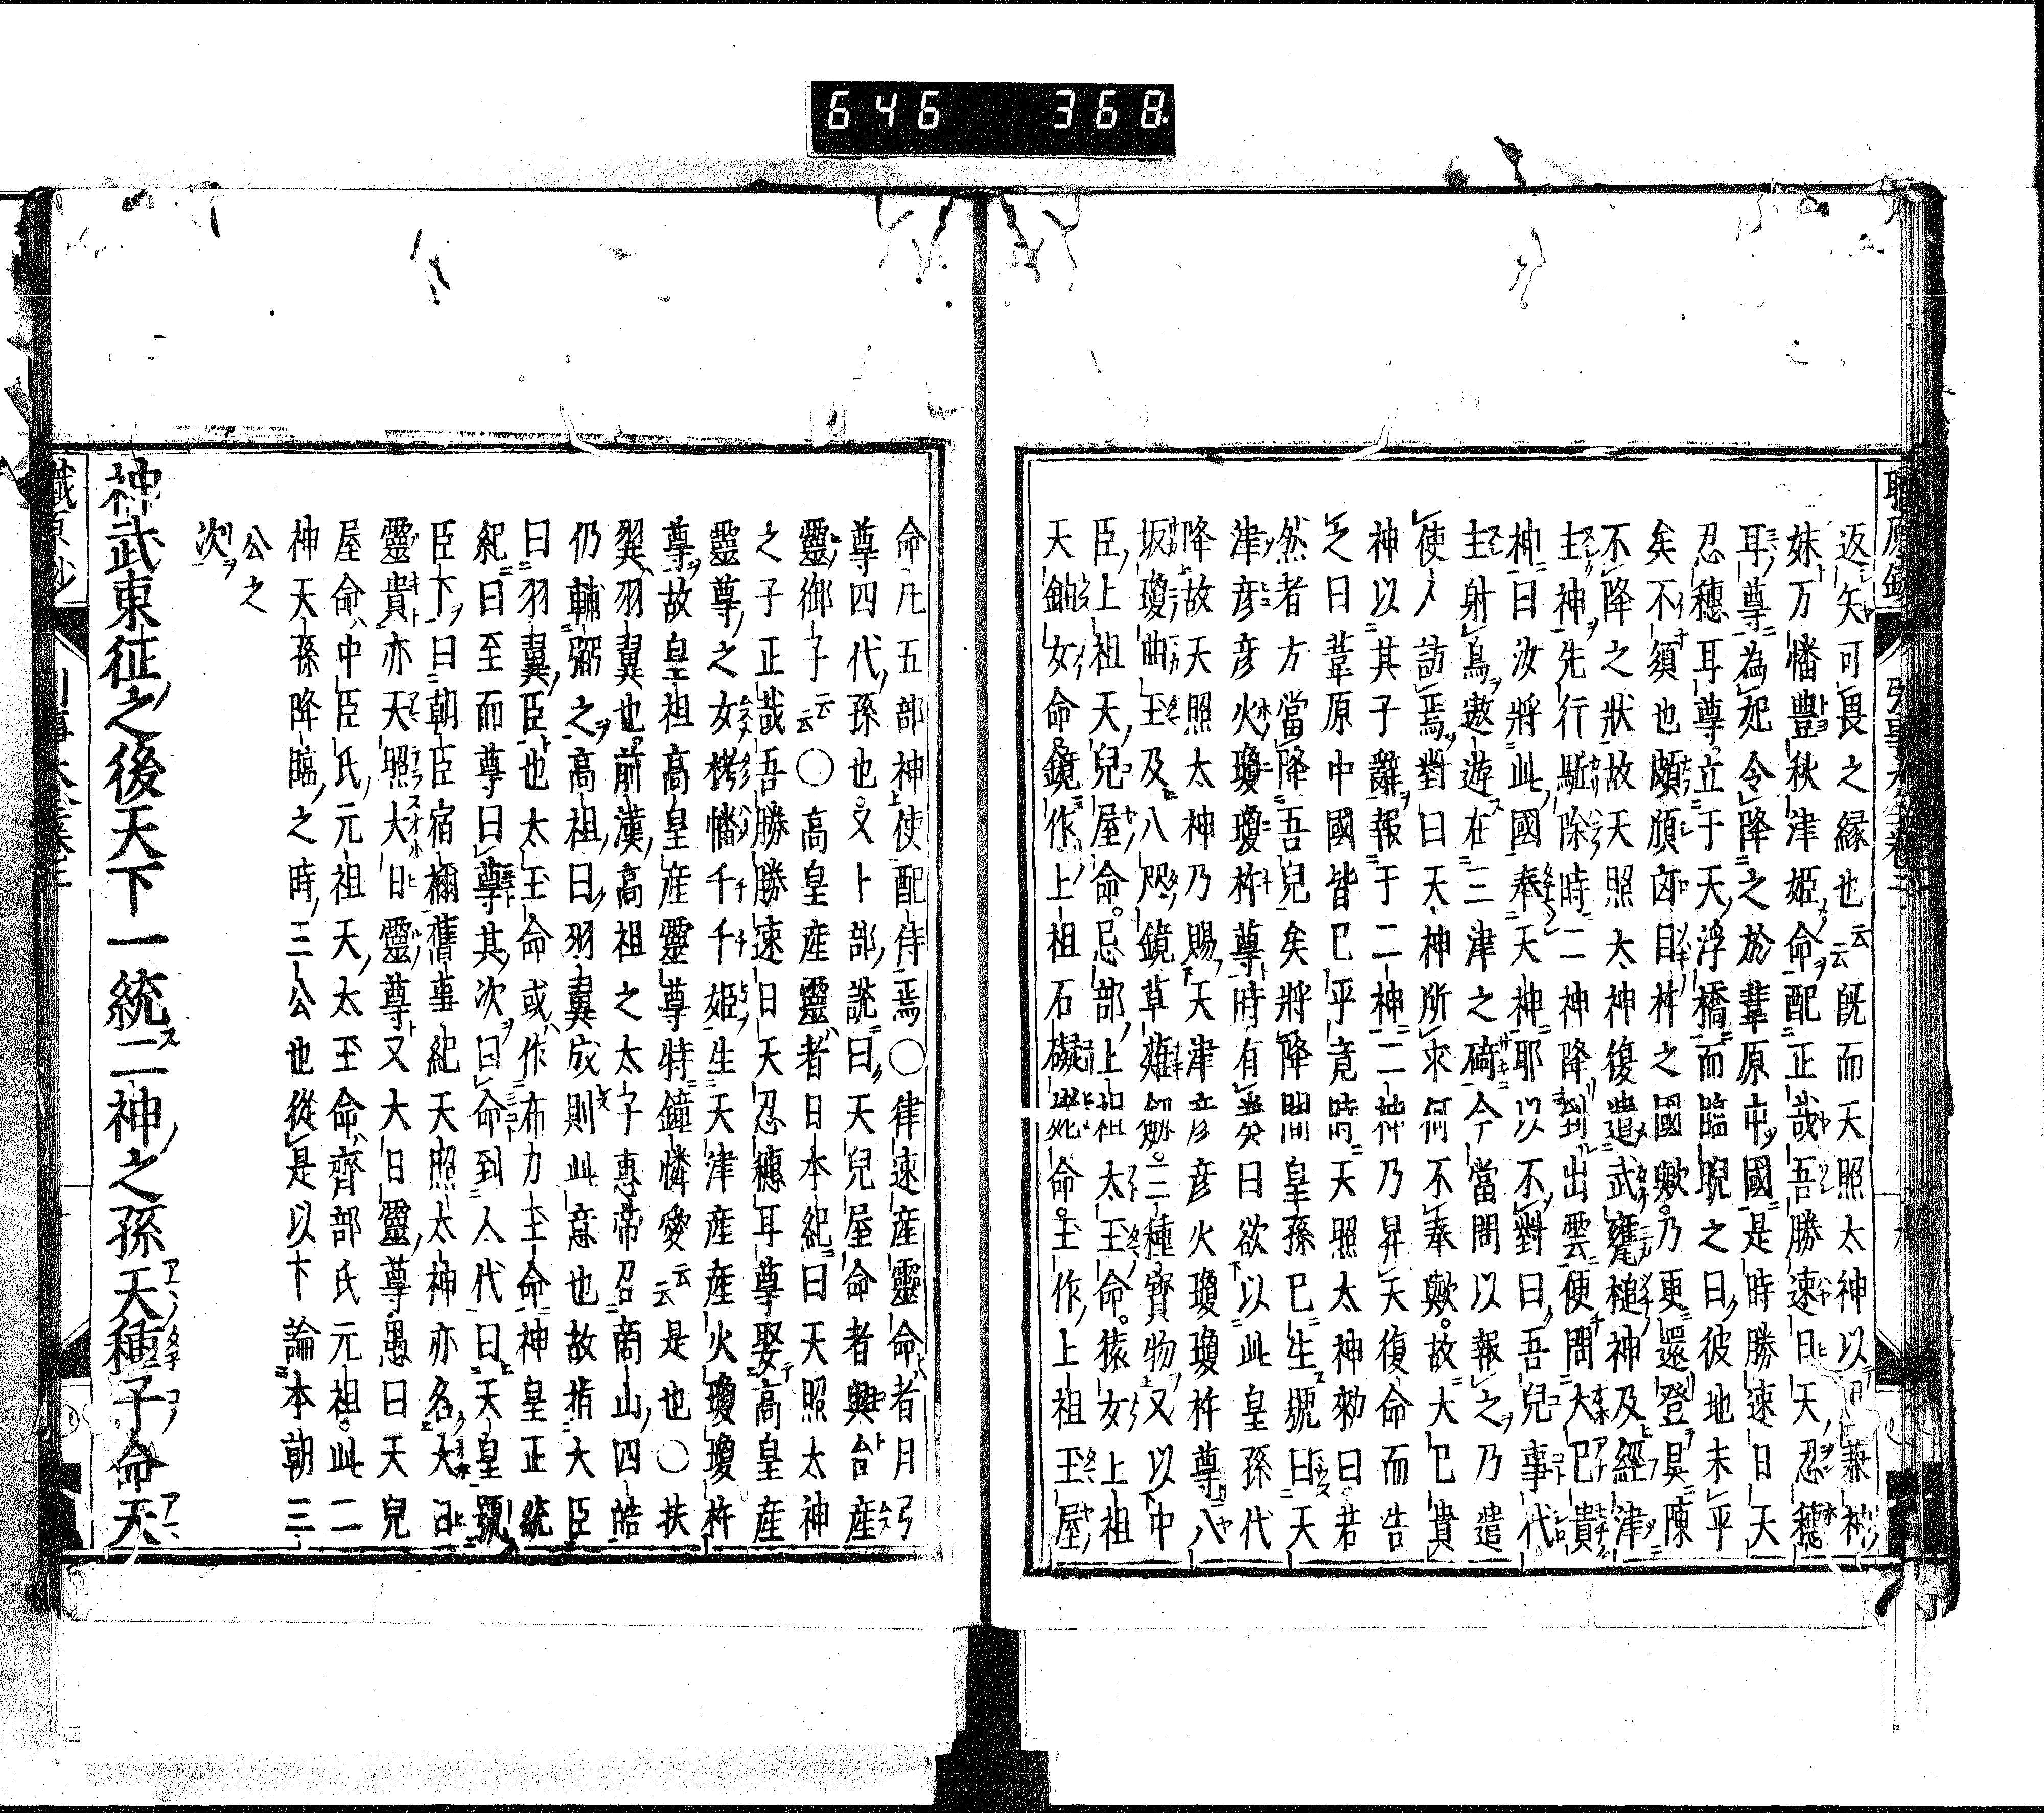 646 368
返矢可畏之縁也云云既而天照太神以兼神
妹万幡豊秋津姫命配正哉吾勝速日天忍穂
耳尊為妃令降之於葦原中國是時勝速日天
忍穂耳尊立于天浮橋而臨睨之曰彼地未平
矣不須也頗傾凶目杵之國歟乃更還登具陳
不降之狀故天照太神復遣武甕槌神及經津
主神先行駈除時二神降到出雲便問大巳貴
神曰汝將此國奉天神耶以不對曰吾兒事代
主射鳥遨遊在三津之碕今當問以報之乃遣
使人訪焉對曰天神所求何不奉歟故大巳貴
神以其子辭報于二神二神乃昇天復命而告
之曰葦原中國皆巳平竟時天照太神勅曰若
然者方當降吾兒矣將降間皇孫巳生號曰天
津彦彦火瓊瓊杵尊時有奏曰欲以此皇孫代
降故天照太神乃賜天津彦彦火瓊瓊杵尊八
坂瓊曲玉及八咫鏡草薙劔三種寳物又以中
臣上祖天兒屋命忌部上祖太玉命猿女上祖
天鈿女命鏡作上祖石礙姥命玉作上祖玉屋
命凡五部神使配侍焉〇律速產靈命者月弓
尊四代孫也又卜部說曰天兒屋命者興台產
靈御子云云〇高皇產靈者日本紀曰天照太神
之子正哉吾勝勝速日天忍穂耳尊娶高皇產
靈尊之女栲幡千千姫生天津產產火瓊瓊杵
尊故皇祖高皇產靈尊特鐘憐愛云云是也〇扶
翼羽翼也前漢高祖之太子惠帝召商山四皓
仍輔弼之高祖曰羽翼成則此意也故指大臣
曰羽翼臣也太玉命或作布力主命神皇正統
紀曰至而尊曰尊其次曰命到人代曰天皇號
臣下曰朝臣宿禰舊事紀天照太神亦名大日
靈貴亦天照大日靈尊又大日靈尊愚曰天兒
屋命中臣氏元祖天太玉命齊部氏元祖此二
神天孫降臨之時三公也從是以下論本朝三
公之
次
神武東征之後天下一統二神之孫天種子命天